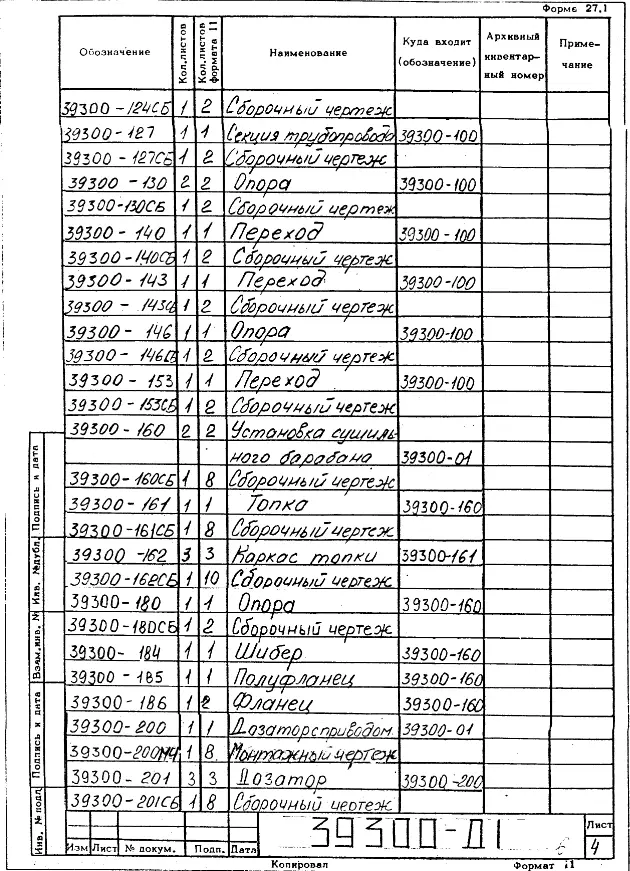 Форма 27,1
Обозначение Кол.листов Кол.листов формата 11 Наименование Куда входит (обозначение) Архивный инвентарный номер Примечание
39300-124СБ 1 2 Сборочный чертеж
39300-127 1 1 Секция трубопровода 39300-100
39300-127СБ 1 2 Сборочный чертеж
39300-130 2 2 Опора 39300-100
39300-130СБ 1 2 Сборочный чертеж
39300-140 1 1 Переход 39300-100
39300-140СБ 1 2 Сборочный чертеж
39300-143 1 1 Переход 39300-100
39300-143СБ 1 2 Сборочный чертеж
39300-146 1 1 Опора 39300-100
39300-146СБ 1 2 Сборочный чертеж
39300-153 1 1 Переход 39300-100
39300-153СБ 1 2 Сборочный чертеж
39300-160 2 2 Установка сушиль-
ного барабана 39300-01
39300-160СБ 1 8 Сборочный чертеж
39300-161 1 1 Топка 39300-160
39300-161СБ 1 8 Сборочный чертеж
39300-162 3 3 Каркас топки 39300-161
39300-162СБ 1 10 Сборочный чертеж
39300-180 1 1 Опора 39300-160
39300-180СБ 1 2 Сборочный чертеж
39300-184 1 1 Шибер 39300-160
39300-185 1 1 Полуфланец 39300-160
39300-186 1 2 Фланец 39300-160
39300-200 1 1 Дозатор с приводом 39300-01
39300-200МЧ 1 8 Монтажный чертеж
39300-201 3 3 Дозатор 39300-200
39300-201СБ 1 8 Сборочный чертеж
Инв. № подл. Подпись и дата Взам.инв. № Инв. № дубл. Подпись и дата
39300-Д1
Лист
4
6
Изм Лист № докум. Подп. Дата
Копировал Формат 11